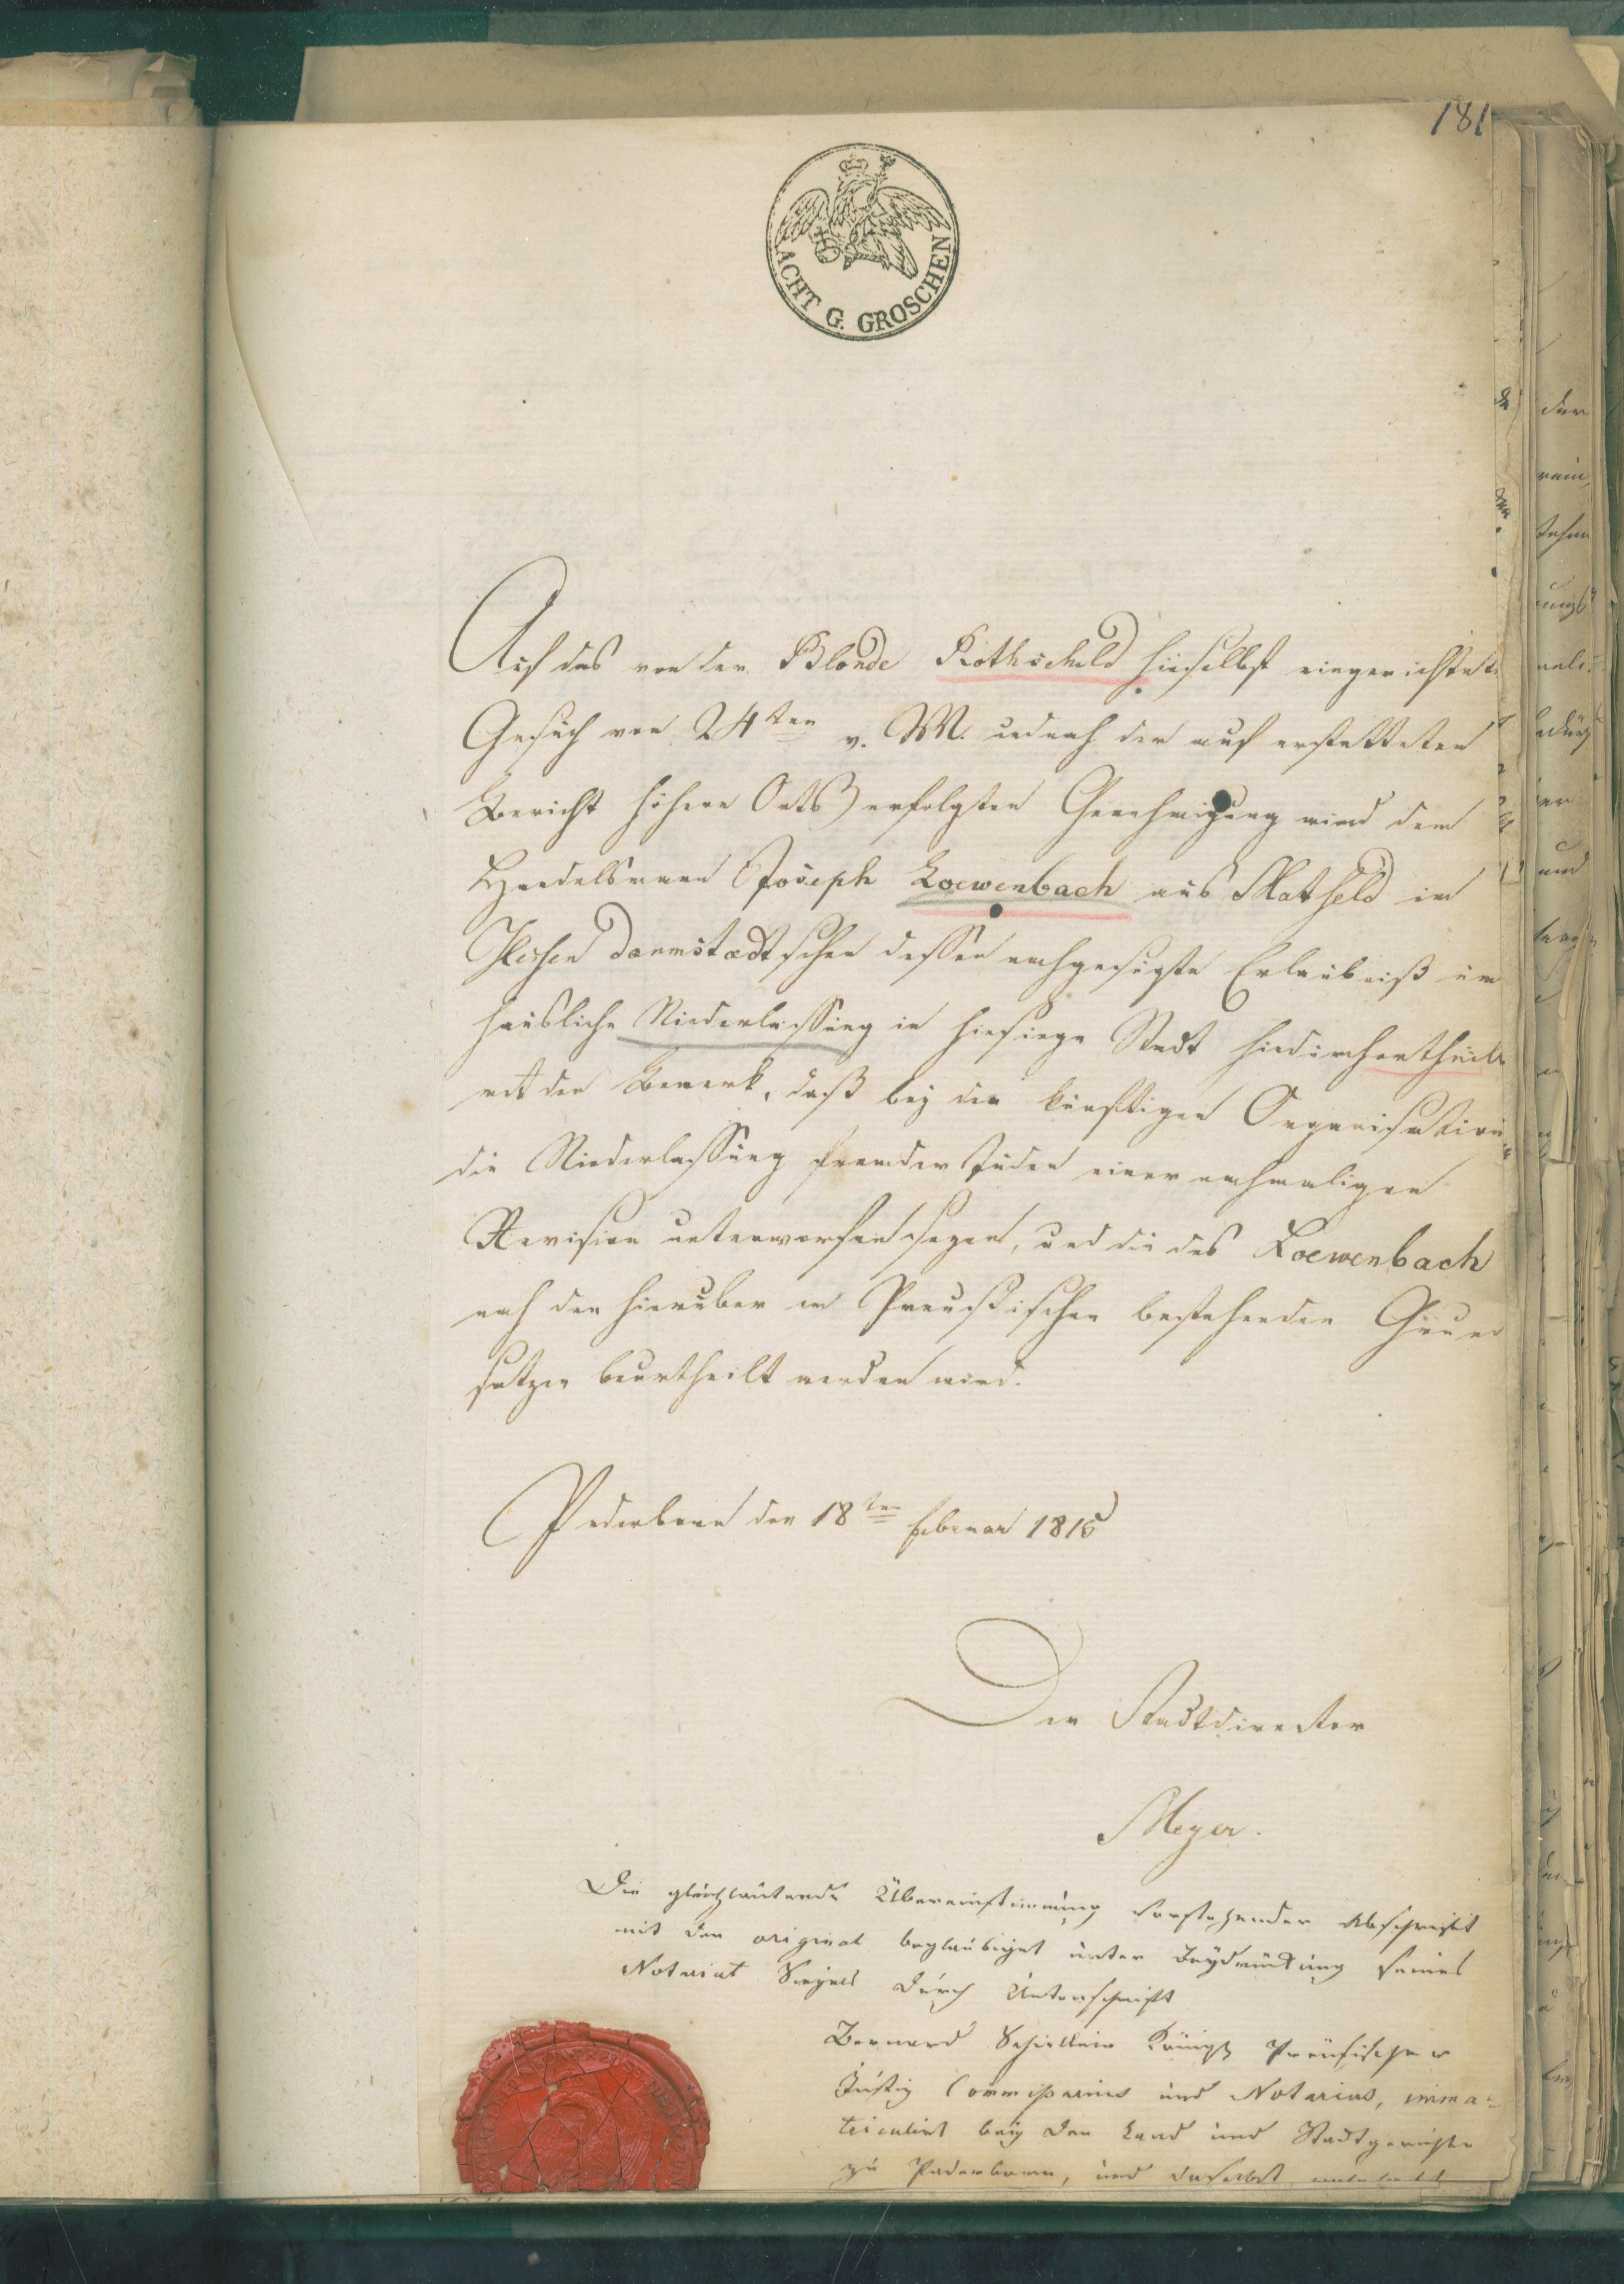 181
ACHT G. GROSCHEN
Auf das von der Blonde Rothschild hieselbst eingerichtete
Gesuch von 24ten v. M. und nach der auf erstatteten
Bericht höhern Orts erfolgten Genehmigung wird dem
Handelsmann Joseph Loewenbach aus Matfeld im
Hessen Darmstaedtschen dessen nachgesugte Erlaubniß um
häusliche Niederlassung in hiesiger Stadt hiedurch ertheilt
mit den Bemerk, daß bey der künftigen Organisation
die Niederlassung fremder Juden einer nochmaligen
Revision unterworfen seyen, und die des Loewenbach
nach den hierüber im Preußischen bestehenden Grund
satzen beurtheilt werden wird.
Paderborn den 18ten Februar 1816
Der Stadtdirector
Meyer.
Die gleichlautende Übereinstimmung vorstehender Abschrift
mit dem original beglaubiget unter Beydrückung seines
Notariat Siegels durch Unterschrift
Bernard Königl Preußischer
Justiz Commissarius und Notarius, imma=
triculirt bey dem Land und Stadtgerichte
zu Paderborn, und daselbst